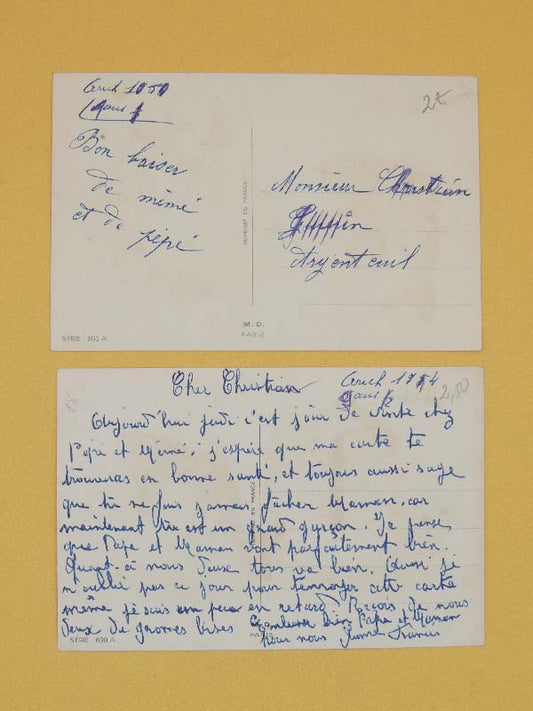 2€
Bon baiser
de mémé
et de pépé
Monsieur Christian
Argenteuil
IMPRIMÉ EN FRANCE
M. D.
PARIS
SÉRIE . 600 A
Cher Christian
2,50
Aujourd'hui jeudi c'est jour de visite chez
Pépé et Mémé, j'espère que ma carte te
trouveras en bonne santé, et toujours aussi sage
que tu ne fais jamais fâcher Maman, car
maintenant tu est un grand garçon. Je pense
que Papa et Maman vont parfaitement bien.
Quant à nous deux tous va bien. Aussi je
n'oublie pas ce jour pour t'envoyer cette carte
même je suis un peu en retard. Reçois de nous
deux de grosses bises
bien Papa et Maman
Pour nous Francis
EN FRANCE
SÉRIE . 600 A
PA